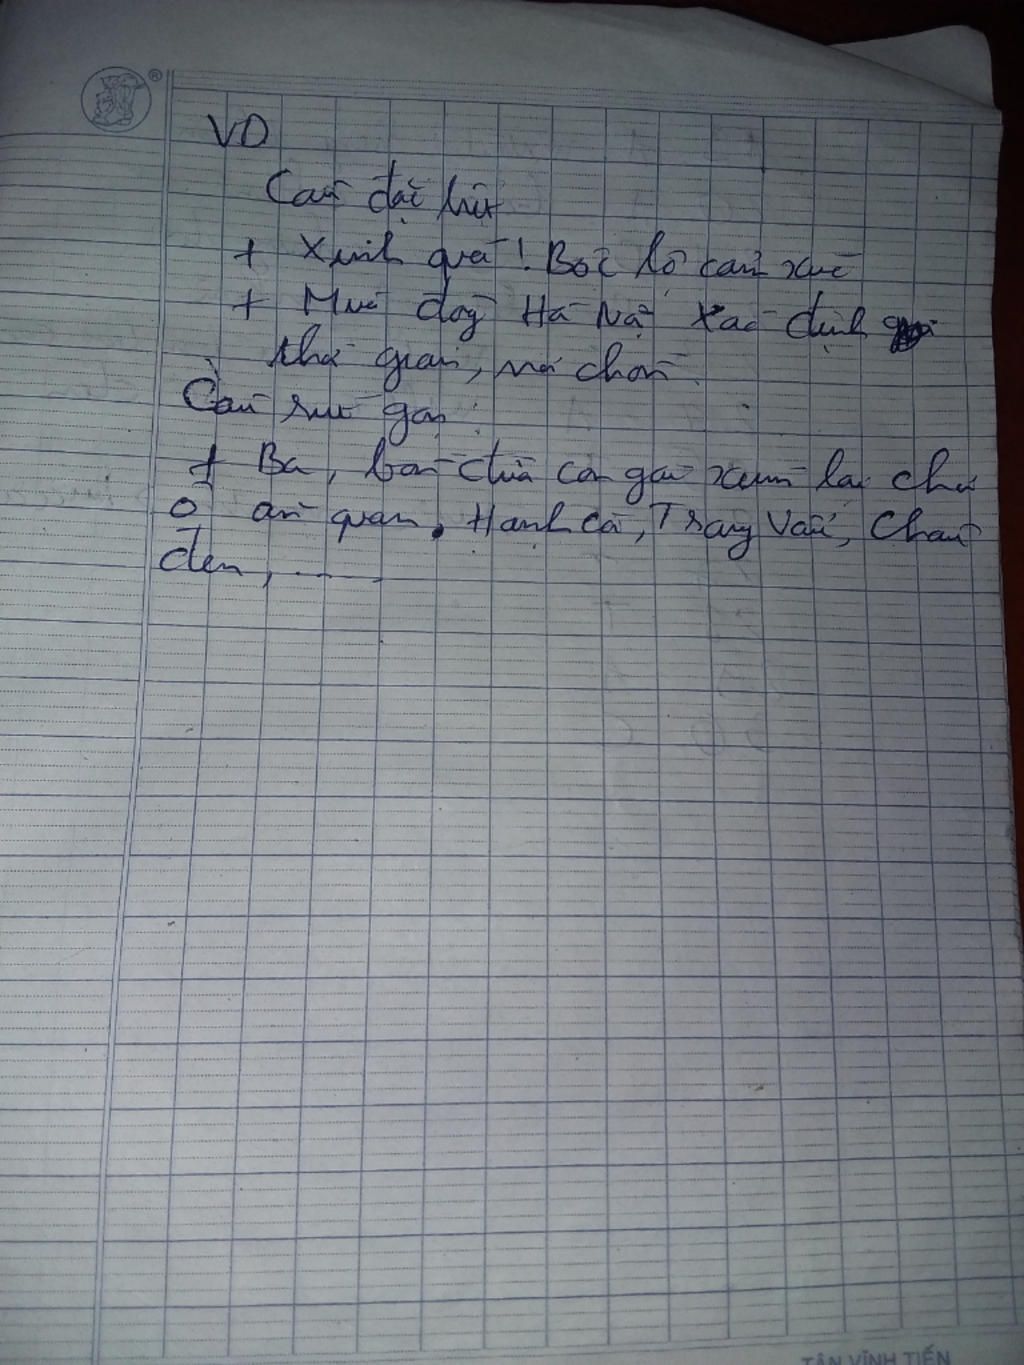 VD
Câu đặc biệt
+ Xinh quá! Bộc lộ cảm xúc
+ Mùa đông Hà Nội Xác định
thời gian, nơi chốn
Câu rút gọn:
+ Ba, bốn đứa con gái xúm lại chỗ
ô ăn quan. Hạnh Cà, Trang Vẩu, Chanh
đen, ......
TÂN VĨNH TIẾN
®